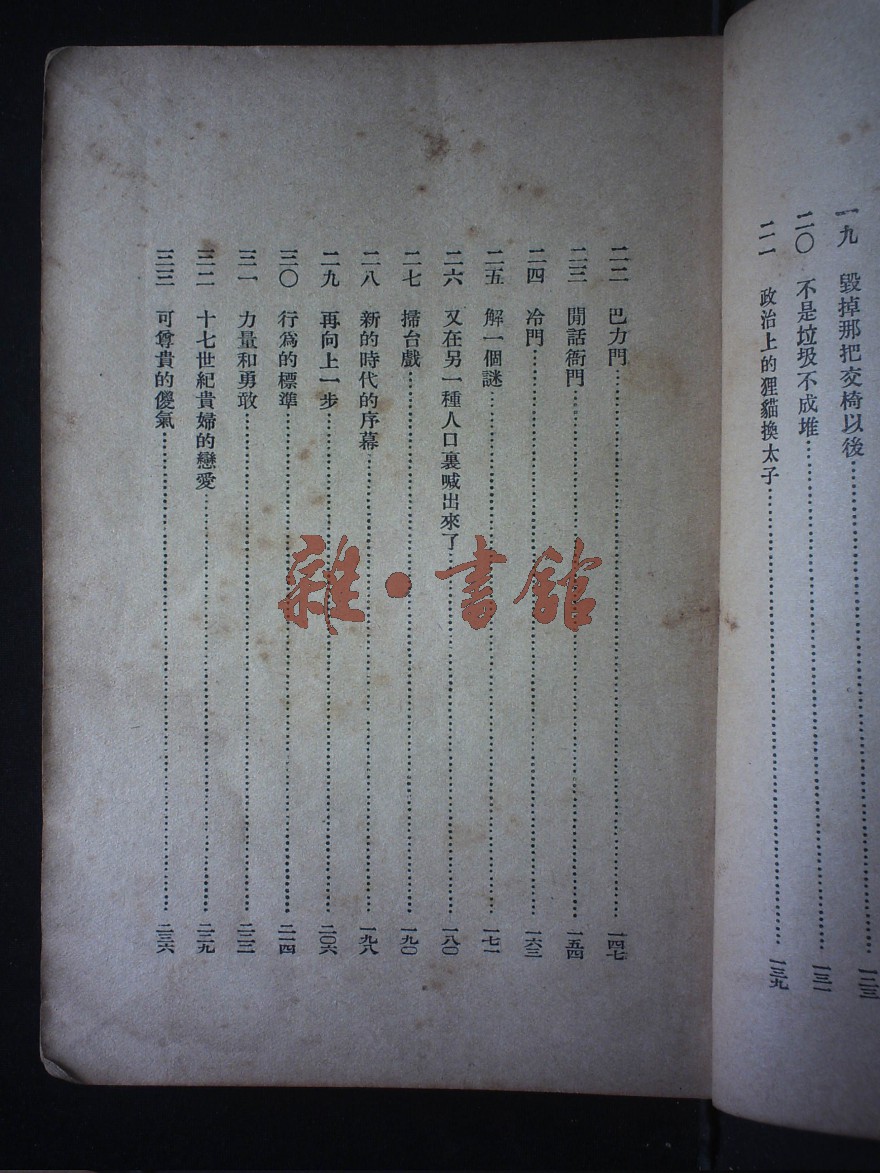 一九　毀掉那把交椅以後………一二三
二〇　不是垃圾不成堆………一三一
二一　政治上的狸貓換太子………一三九
二二　巴力門………一四七
二三　閒話衙門………一五四
二四　冷門………一六三
二五　解一個謎………一七一
二六　又在另一種人口裏喊出來了………一八〇
二七　掃台戲………一九〇
二八　新的時代的序幕………一九八
二九　再向上一步………二〇六
三〇　行爲的標準………二一四
三一　力量和勇敢………二二二
三二　十七世紀貴婦的戀愛………二二九
三三　可尊貴的儍氣………二三六
雜·書館